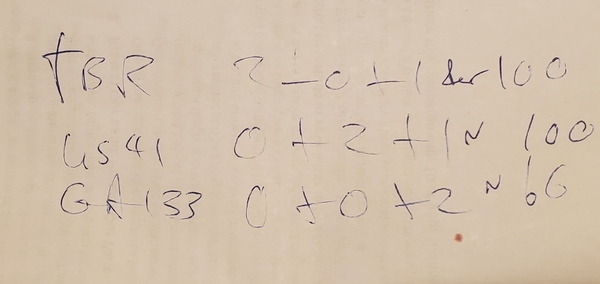 TBR 2+0+1 der 100
US41 0+2+1 " 100
GA133 0+0+2 " 66